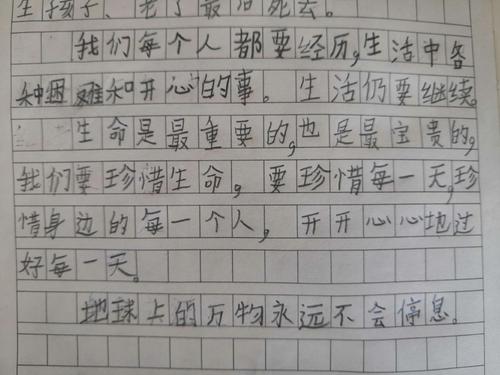 生孩子、老了最后死去。
我们每个人都要经历,生活中各
种困难和开心的事。生活仍要继续。
生命是最重要的,也是最宝贵的,
我们要珍惜生命,要珍惜每一天,珍
惜身边的每一个人,开开心心地过
好每一天。
地球上的万物永远不会停息。